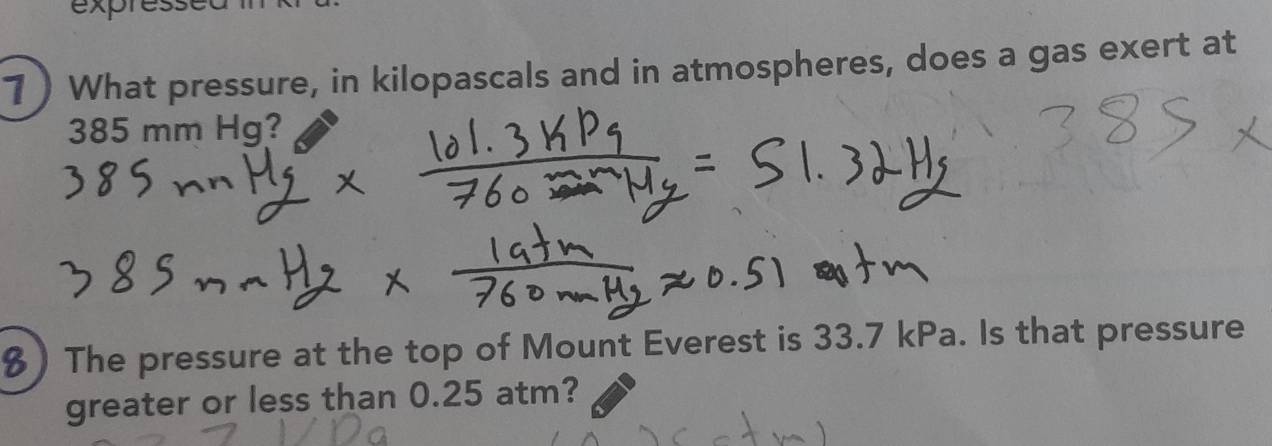 expressed in kPa.
7 What pressure, in kilopascals and in atmospheres, does a gas exert at
385 mm Hg?
385 mm Hg × 101.3 KPa / 760 mm Hg = 51.32 Hg
385 ×
385 mm Hg × 1 atm / 760 mm Hg ≈ 0.51 atm
8 The pressure at the top of Mount Everest is 33.7 kPa. Is that pressure
greater or less than 0.25 atm?